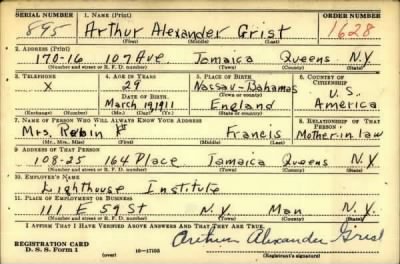 SERIAL NUMBER 1. NAME (Print) ORDER NUMBER
895 Arthur Alexander Grist 1628
(First) (Middle) (Last)
2. ADDRESS (Print)
170-16 107 Ave. Jamaica Queens N.Y.
(Number and street or R. F. D. number) (Town) (County) (State)
3. TELEPHONE 4. AGE IN YEARS 5. PLACE OF BIRTH 6. COUNTRY OF CITIZENSHIP
X 29 Nassau-Bahamas U.S.
DATE OF BIRTH (Town or county)
March 19, 1911 England America
(Exchange) (Number) (Mo.) (Day) (Yr.) (State or country)
7. NAME OF PERSON WHO WILL ALWAYS KNOW YOUR ADDRESS 8. RELATIONSHIP OF THAT PERSON
Mrs. Robin Francis Mother-in law
(Mr., Mrs., Miss) (First) (Middle) (Last)
9. ADDRESS OF THAT PERSON
108-25 164 Place Jamaica Queens N.Y.
(Number and street or R. F. D. number) (Town) (County) (State)
10. EMPLOYER'S NAME
Lighthouse Institute
11. PLACE OF EMPLOYMENT OR BUSINESS
111 E 59 St N.Y. Man N.Y.
(Number and street or R. F. D. number) (Town) (County) (State)
I AFFIRM THAT I HAVE VERIFIED ABOVE ANSWERS AND THAT THEY ARE TRUE.
REGISTRATION CARD
D. S. S. Form 1 (over) 16-17105 Arthur Alexander Grist
(Registrant's signature)